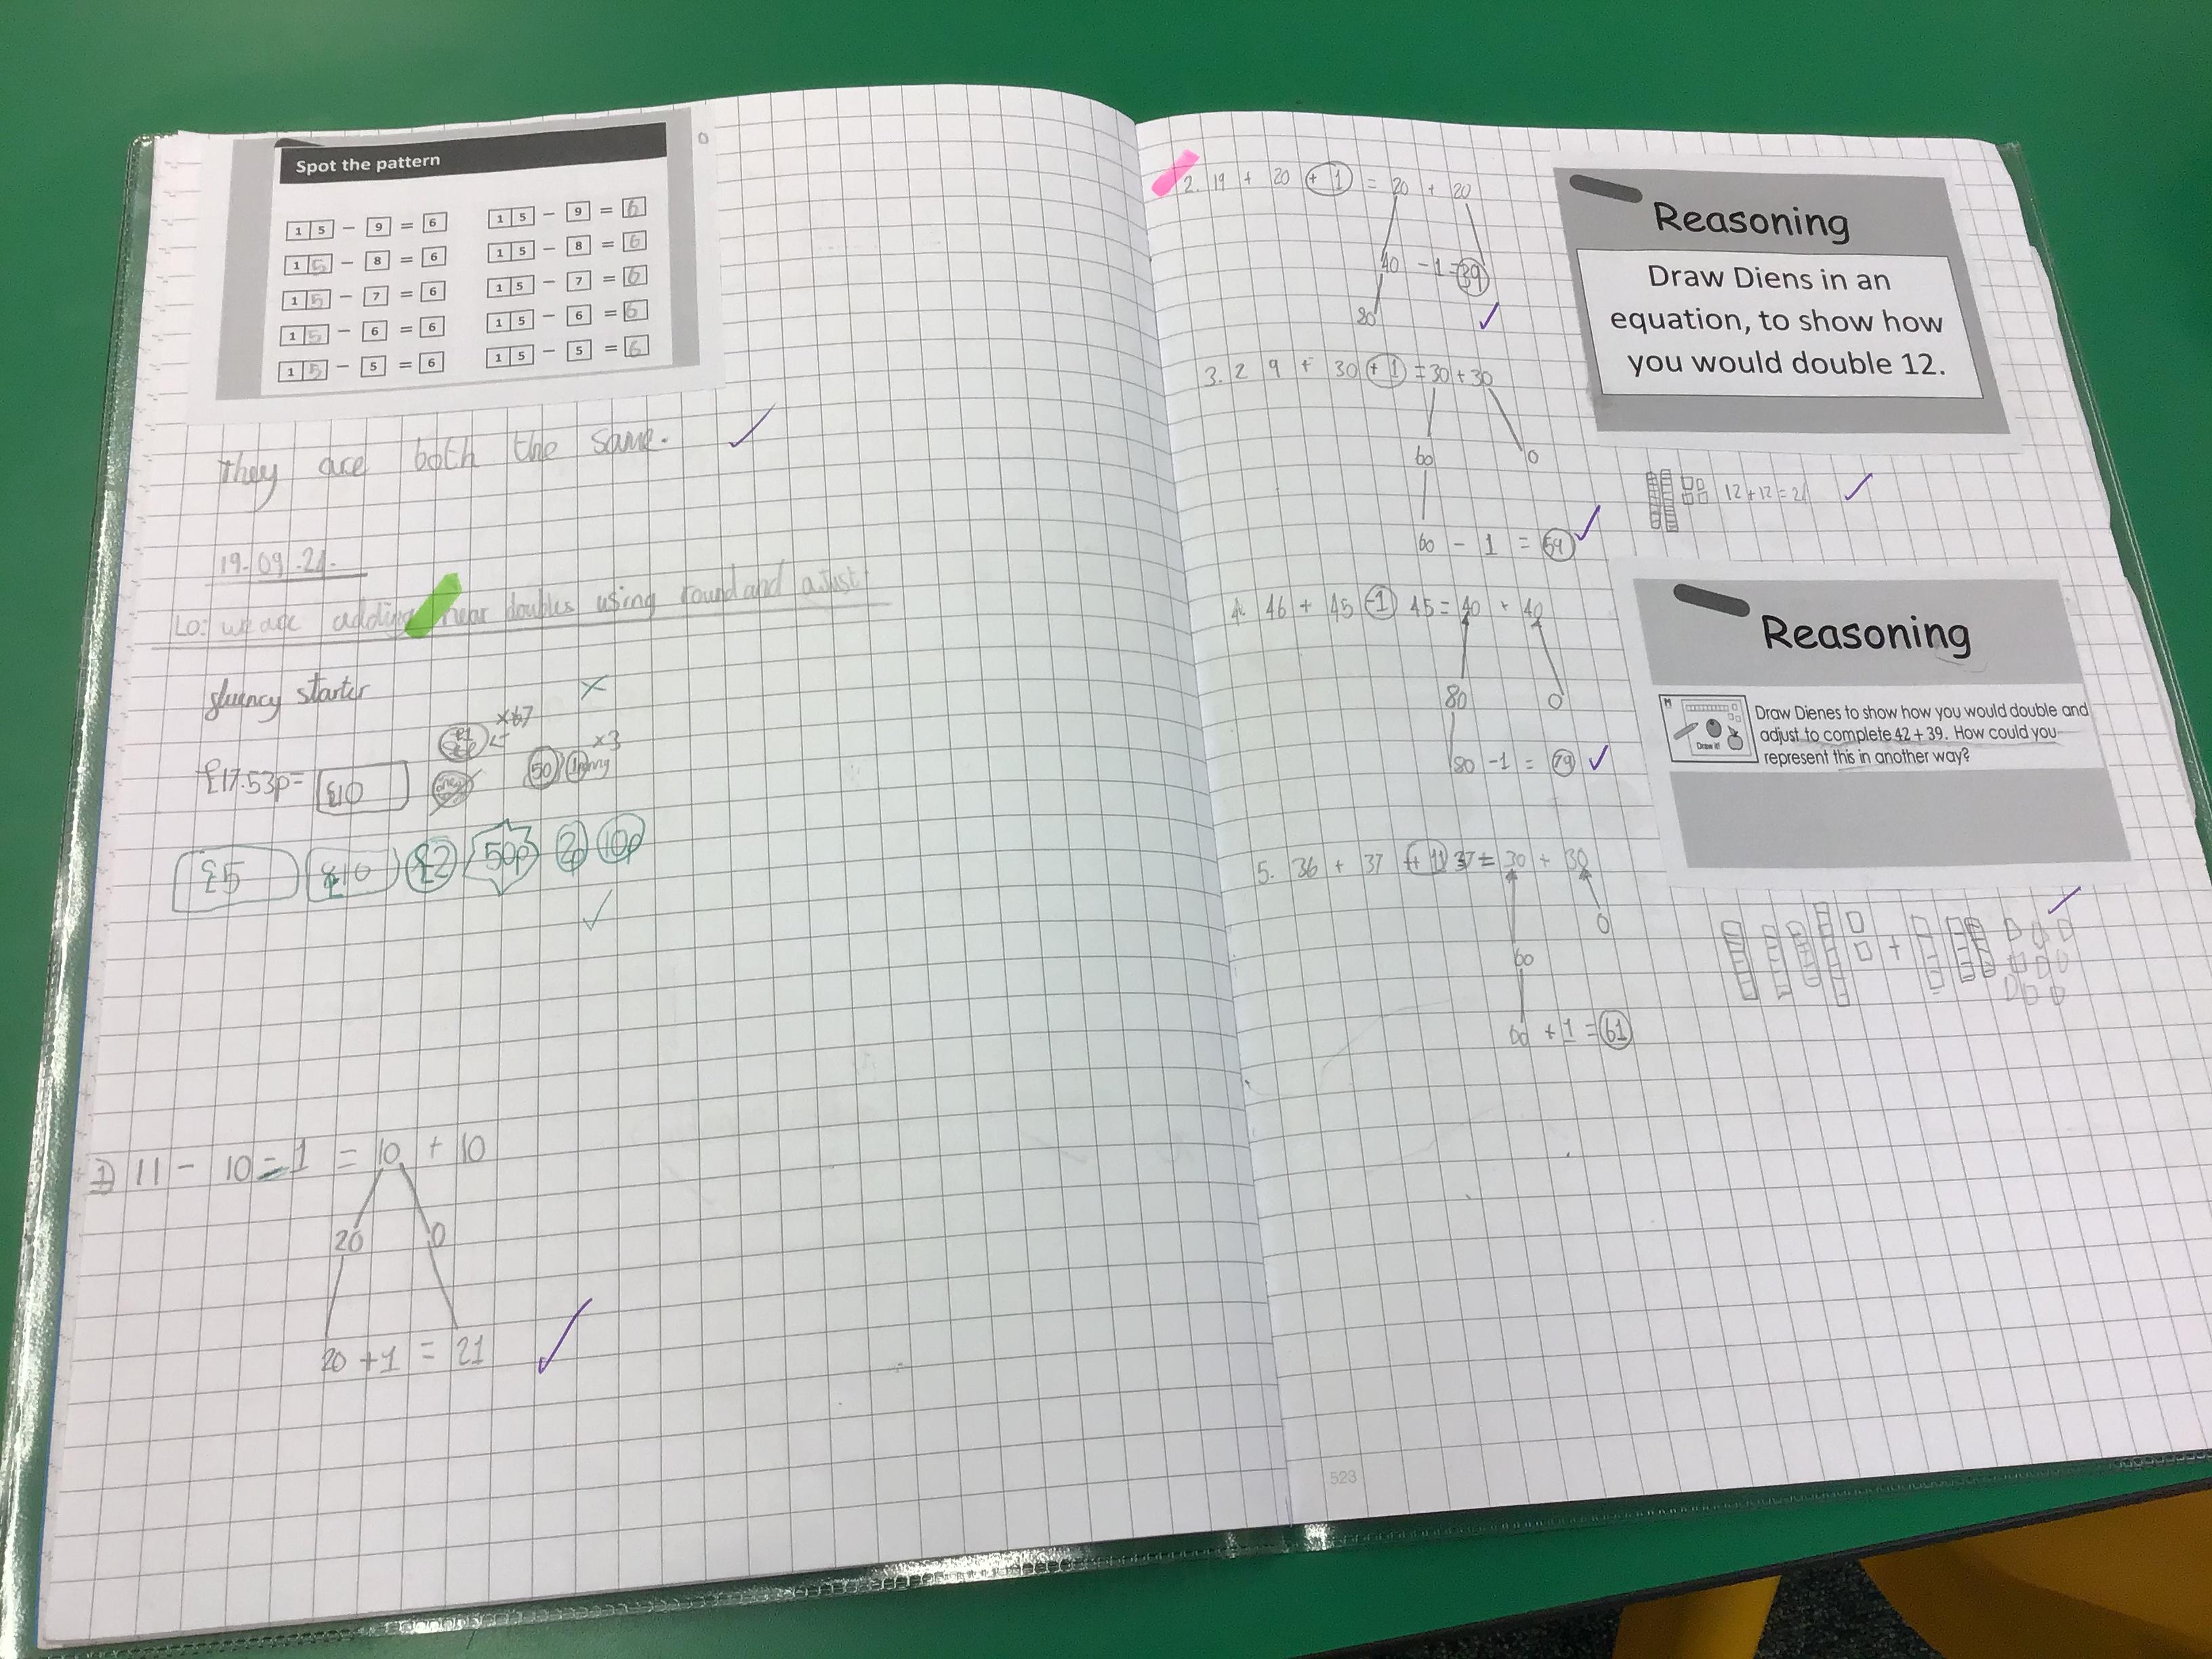 Spot the pattern
15 - 9 = 6 15 - 9 = 6
15 - 8 = 6 15 - 8 = 6
15 - 7 = 6 15 - 7 = 6
15 - 6 = 6 15 - 6 = 6
15 - 5 = 6 15 - 5 = 6
They are both the same.
19.09.24.
LO: we are adding near doubles using round and ajust
fluency starter
£17.53p= £10
x3
50
£5 £10 £2 50p 2p 10p
1) 11 - 10 - 1 = 10 + 10
20 0
20 + 1 = 21
2. 19 + 20 + 1 = 20 + 20
40 - 1 = 39
20
3. 29 + 30 + 1 = 30 + 30
60 0
60 - 1 = 59
4. 46 + 45 -1 45 = 40 + 40
80 0
80 - 1 = 79
5. 36 + 37 + 1 37 = 30 + 30
0
60
60 + 1 = 61
523
Reasoning
Draw Diens in an
equation, to show how
you would double 12.
12 + 12 = 24
Reasoning
M
Draw it!
Draw Dienes to show how you would double and
adjust to complete 42 + 39. How could you
represent this in another way?
+